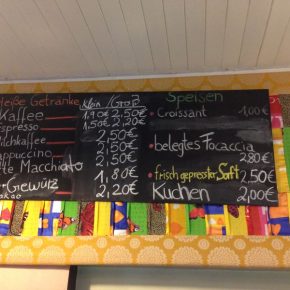 Heiße Getränke Klein/Groß
Kaffee 1.90€ 2,50€
Espresso 1.50€ 2,20€
Milchkaffee 2,50€
Cappuccino 2,50€
Latte Macchiato 2,50€
1,80€
Gewürz 2,20€
Kakao
Speisen
Croissant 1,00€
belegtes Focaccia
2,80€
frisch gepresster Saft 2,50€
Kuchen 2,00€